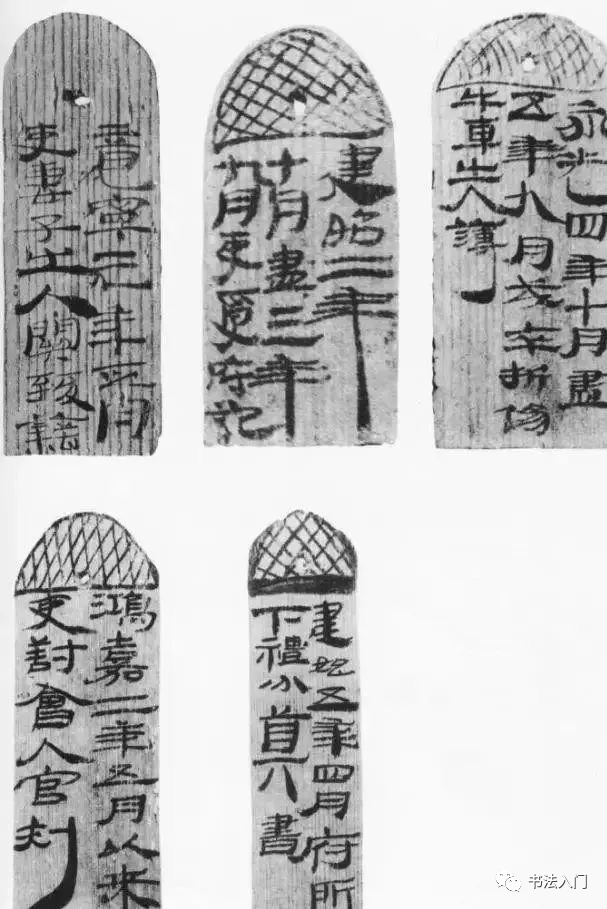 竟寧元年正月
吏妻子出入關致籍
建昭二年
十月盡三年
九月吏受府記
永光四年十月盡
五年九月戍卒折傷
牛車出入簿
鴻嘉二年五月以來
吏對會入官刺
建始五年四月府所
下禮分書
书法入门